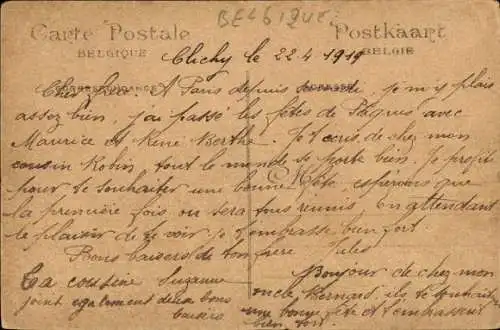 BELGIQUE
Carte Postale Postkaart
BELGIQUE BELGIË
Clichy le 22.4.1919
Cher frère. A Paris depuis je m'y plais
assez bien, j'ai passé les fêtes de Pâques avec
Maurice et René Berthe. Je t'écris de chez mon
cousin Robin, tout le monde se porte bien. Je profite
pour te souhaiter une bonne fête, espérons que
la première fois on sera tous réunis. En attendant
le plaisir de te voir je t'embrasse bien fort
Bons baisers de ton frère Jules
Ta cousine Suzanne
joint également deux bons
baisers
Bonjour de chez mon
oncle Bernard, ils te souhaite
une bonne fête et t'embrassent
bien fort.